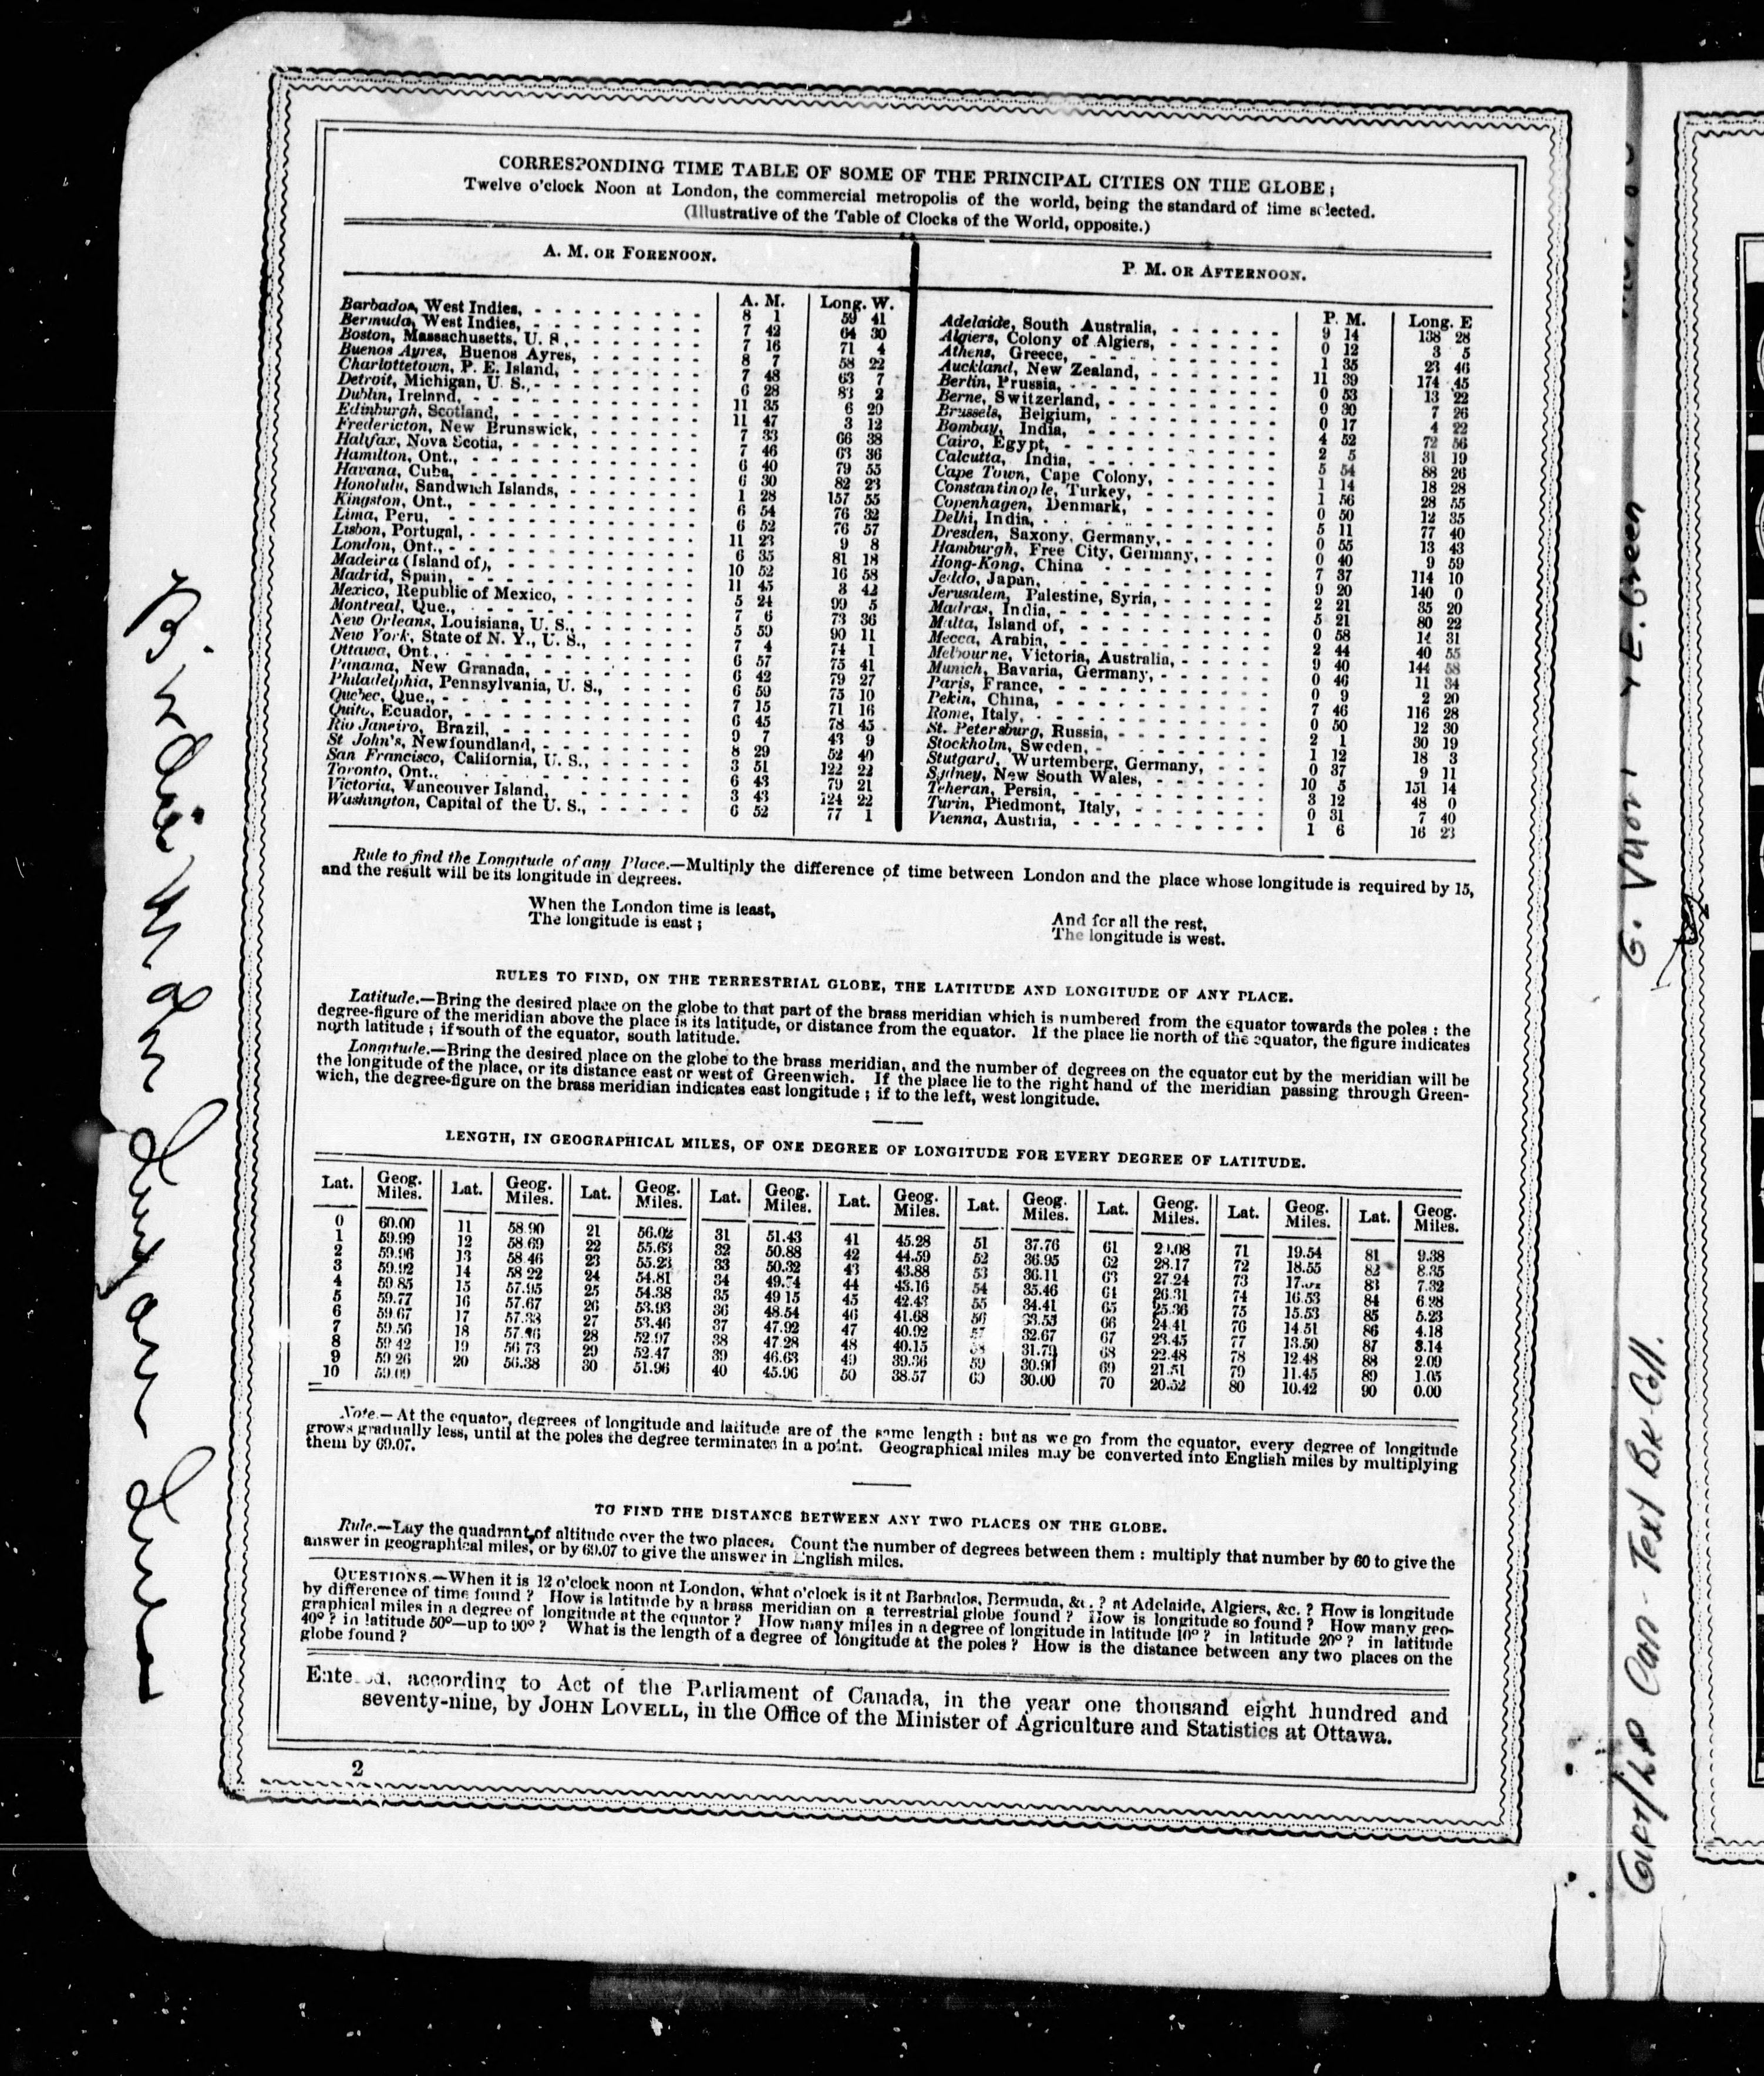 CORRESPONDING TIME TABLE OF SOME OF THE PRINCIPAL CITIES ON THE GLOBE;
Twelve o'clock Noon at London, the commercial metropolis of the world, being the standard of time selected.
(Illustrative of the Table of Clocks of the World, opposite.)
A. M. OR FORENOON.
A. M. Long. W.
Barbados, West Indies, 8 1 59 41
Bermuda, West Indies, 7 42 64 30
Boston, Massachusetts, U. S., 7 16 71 4
Buenos Ayres, Buenos Ayres, 8 7 58 22
Charlottetown, P. E. Island, 7 48 63 7
Detroit, Michigan, U. S., 6 28 83 2
Dublin, Ireland, 11 35 6 20
Edinburgh, Scotland, 11 47 3 12
Fredericton, New Brunswick, 7 33 66 38
Halifax, Nova Scotia, 7 46 63 36
Hamilton, Ont., 6 40 79 55
Havana, Cuba, 6 30 82 23
Honolulu, Sandwich Islands, 1 28 157 55
Kingston, Ont., 6 54 76 32
Lima, Peru, 6 52 76 57
Lisbon, Portugal, 11 23 9 8
London, Ont., 6 35 81 18
Madeira (Island of), 10 52 16 58
Madrid, Spain, 11 45 3 42
Mexico, Republic of Mexico, 5 24 99 5
Montreal, Que., 7 6 73 36
New Orleans, Louisiana, U. S., 5 59 90 11
New York, State of N. Y., U. S., 7 4 74 1
Ottawa, Ont., 6 57 75 41
Panama, New Granada, 6 42 79 27
Philadelphia, Pennsylvania, U. S., 6 59 75 10
Quebec, Que., 7 15 71 16
Quito, Ecuador, 6 45 78 45
Rio Janeiro, Brazil, 9 7 43 9
St John's, Newfoundland, 8 29 52 40
San Francisco, California, U. S., 3 51 122 22
Toronto, Ont., 6 43 79 21
Victoria, Vancouver Island, 3 43 124 22
Washington, Capital of the U. S., 6 52 77 1
P. M. OR AFTERNOON.
P. M. Long. E
Adelaide, South Australia, 9 14 138 28
Algiers, Colony of Algiers, 0 12 3 5
Athens, Greece, 1 35 23 46
Auckland, New Zealand, 11 39 174 45
Berlin, Prussia, 0 53 13 22
Berne, Switzerland, 0 30 7 26
Brussels, Belgium, 0 17 4 22
Bombay, India, 4 52 72 56
Cairo, Egypt, 2 5 31 19
Calcutta, India, 5 54 88 26
Cape Town, Cape Colony, 1 14 18 28
Constantinople, Turkey, 1 56 28 55
Copenhagen, Denmark, 0 50 12 35
Delhi, India, 5 11 77 40
Dresden, Saxony, Germany, 0 55 13 43
Hamburgh, Free City, Germany, 0 40 9 59
Hong-Kong, China 7 37 114 10
Jeddo, Japan, 9 20 140 0
Jerusalem, Palestine, Syria, 2 21 35 20
Madras, India, 5 21 80 22
Malta, Island of, 0 58 14 31
Mecca, Arabia, 2 44 40 55
Melbourne, Victoria, Australia, 9 40 144 58
Munich, Bavaria, Germany, 0 46 11 34
Paris, France, 0 9 2 20
Pekin, China, 7 46 116 28
Rome, Italy, 0 50 12 30
St. Petersburg, Russia, 2 1 30 19
Stockholm, Sweden, 1 12 18 3
Stutgard, Wurtemberg, Germany, 0 37 9 11
Sydney, New South Wales, 10 5 151 14
Teheran, Persia, 3 12 48 0
Turin, Piedmont, Italy, 0 31 7 40
Vienna, Austria, 1 6 16 23
Rule to find the Longitude of any Place.—Multiply the difference of time between London and the place whose longitude is required by 15,
and the result will be its longitude in degrees.
When the London time is least,
The longitude is east;
And for all the rest,
The longitude is west.
RULES TO FIND, ON THE TERRESTRIAL GLOBE, THE LATITUDE AND LONGITUDE OF ANY PLACE.
Latitude.—Bring the desired place on the globe to that part of the brass meridian which is numbered from the equator towards the poles: the
degree-figure of the meridian above the place is its latitude, or distance from the equator. If the place lie north of the equator, the figure indicates
north latitude; if south of the equator, south latitude.
Longitude.—Bring the desired place on the globe to the brass meridian, and the number of degrees on the equator cut by the meridian will be
the longitude of the place, or its distance east or west of Greenwich. If the place lie to the right hand of the meridian passing through Green-
wich, the degree-figure on the brass meridian indicates east longitude; if to the left, west longitude.
LENGTH, IN GEOGRAPHICAL MILES, OF ONE DEGREE OF LONGITUDE FOR EVERY DEGREE OF LATITUDE.
Lat. Geog. Miles. Lat. Geog. Miles. Lat. Geog. Miles. Lat. Geog. Miles. Lat. Geog. Miles. Lat. Geog. Miles. Lat. Geog. Miles. Lat. Geog. Miles. Lat. Geog. Miles.
0 60.00
1 59.99 11 58.90 21 56.02 31 51.43 41 45.28 51 37.76 61 71 19.54 81 9.38
2 59.96 12 58.69 22 55.63 32 50.88 42 44.59 52 36.95 62 28.17 72 18.55 82 8.35
3 59.92 13 58.46 23 55.23 33 50.32 43 43.88 53 36.11 63 27.24 73 83 7.32
4 59.85 14 58.22 24 54.81 34 49.74 44 43.16 54 35.46 64 26.31 74 16.53 84 6.28
5 59.77 15 57.95 25 54.38 35 49 15 45 42.43 55 34.41 65 25.36 75 15.53 85 5.23
6 59.67 16 57.67 26 53.93 36 48.54 46 41.68 56 33.55 66 24.41 76 14.51 86 4.18
7 59.56 17 57.38 27 53.46 37 47.92 47 40.92 57 32.67 67 23.45 77 13.50 87 3.14
8 59 42 18 28 52.97 38 47.28 48 40.15 58 31.79 68 22.48 78 12.48 88 2.09
9 59 26 19 56 73 29 52.47 39 46.63 49 39.36 59 30.90 69 21.51 79 11.45 89 1.05
10 59.09 20 56.38 30 51.96 40 45.96 50 38.57 60 30.00 70 20.52 80 10.42 90 0.00
Note.—At the equator, degrees of longitude and latitude are of the same length: but as we go from the equator, every degree of longitude
grows gradually less, until at the poles the degree terminates in a point. Geographical miles may be converted into English miles by multiplying
them by 69.07.
TO FIND THE DISTANCE BETWEEN ANY TWO PLACES ON THE GLOBE.
Rule.—Lay the quadrant of altitude over the two places. Count the number of degrees between them: multiply that number by 60 to give the
answer in geographical miles, or by 69.07 to give the answer in English miles.
QUESTIONS.—When it is 12 o'clock noon at London, what o'clock is it at Barbados, Bermuda, &c.? at Adelaide, Algiers, &c.? How is longitude
by difference of time found? How is latitude by a brass meridian on a terrestrial globe found? How is longitude so found? How many geo-
graphical miles in a degree of longitude at the equator? How many miles in a degree of longitude in latitude 10°? in latitude 20°? in latitude
40°? in latitude 50°—up to 90°? What is the length of a degree of longitude at the poles? How is the distance between any two places on the
globe found?
Entered, according to Act of the Parliament of Canada, in the year one thousand eight hundred and
seventy-nine, by JOHN LOVELL, in the Office of the Minister of Agriculture and Statistics at Ottawa.
2
Gift/LP Can - Text Bk Coll.
E. Green